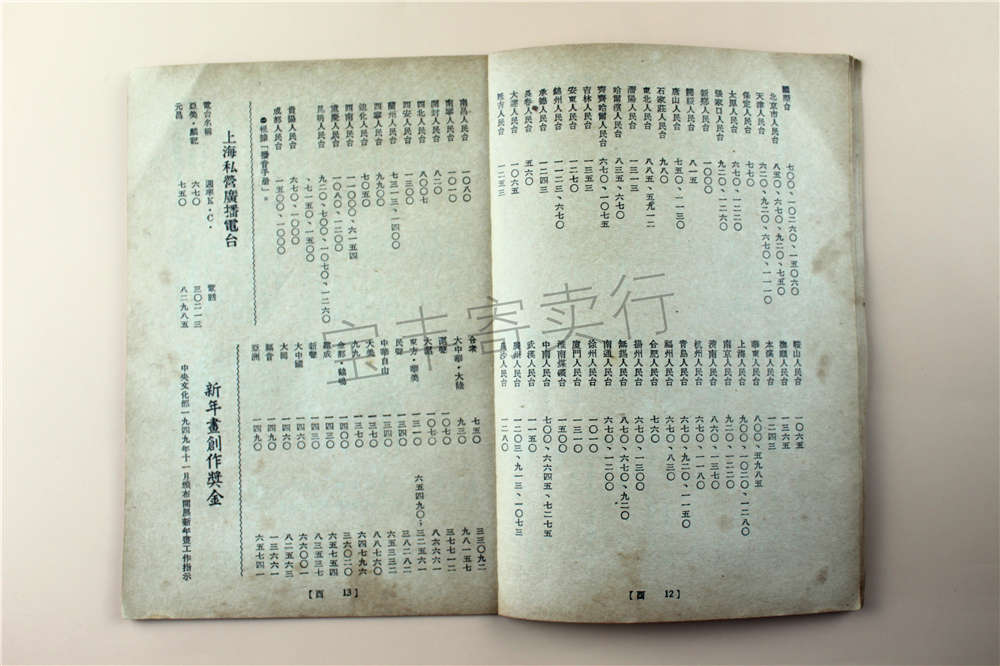 國際台 七○○、一○二六○、一五○六○
北京市人民台 八五○、六七○、九二○、七五○
天津人民台 六二○、九二○、六七○、一一一○
保定人民台 七七○
太原人民台 六七○、一二二○
張家口人民台 九二○、一二六○
新鄉人民台 一○○○
人民台 八一五
唐山人民台 七五○、一一三○
石家莊人民台 九八○
東北人民台 八八五、五九一二
瀋陽人民台 一三一三
哈爾濱人民台 八三五、六七○
齊齊哈爾人民台 六七○、一○七五
吉林人民台 一三五三
安東人民台 一二七○
錦州人民台 一一二三、六七○
承德人民台 一二四三
長春人民台 六五○
大連人民台 一○六五
延吉人民台 一二五三
鞍山人民台 一○六五
撫順人民台 一三六五
本溪人民台 一二四三
華東人民台 八○○、五九八五
上海人民台 九○○、一○二○、一二八○
南京人民台 九二○、一二二○
濟南人民台 八六○、一三七○
杭州人民台 六七○、一一八○
青島人民台 六七○、九二○、一一五○
福州人民台 六七○、八三○
合肥人民台 七六○
揚州人民台 六七○、一三○○
無錫人民台 八七○、六七○、九二○
南通人民台 六七○、一二○○
徐州人民台 一○一○
廈門人民台 一三一○
淮南煤礦台 一五○○
中南人民台 七○○、六六四五、七二七五
武漢人民台 一一五○
廣州人民台 一二○三、九一三、一○七三
長沙人民台 一二八○
【酉 12】
南昌人民台 一○八○
南寧人民台 一○一○
開封人民台 八二○
西北人民台 八○○七
西安人民台 一三○○
蘭州人民台 七三一三、一四○○
西寧人民台 九九○○
迪化人民台 七○五○
西南人民台 一○○○、六一五四
重慶人民台 一○八○、一二○○
昆明人民台 九二○、七○○、一○七○、一二六○
貴陽人民台 六七○、一○○○
成都人民台 一五○○、一○○○
●根據「播音手册」。
上海私營廣播電台
電台名稱 週率K．C． 電話
亞美・麟記 六七○ 三○二一三
元昌 七五○ 八二九八五
合衆 七五○ 三三○九二
大中華・大陸 九三○ 九八一五七
一○七○ 三七七一二
一○七○ 八六六六一
東方・華美 一三一○ 六五四九○；三二五六一
民聲 一三四○ 三八二八二
中華自由 一三四○ 六五三三二
大美 一三七○ 六四七九六
九九 一三七○ 八八七六○
金都・鶴鳴 一四○○ 三六○二○
建成 一四三○ 六五七五四
新聲 一四三○ 八三五三七
大中國 一四六○ 六六○○一
大同 一四六○ 八二五六三
福音 一四九○ 一三六六一
亞洲 一四九○ 六五七四一
新年畫創作獎金
中央文化部一九四九年十一月頒布開展新年畫工作指示
【酉 13】
宝丰寄卖行